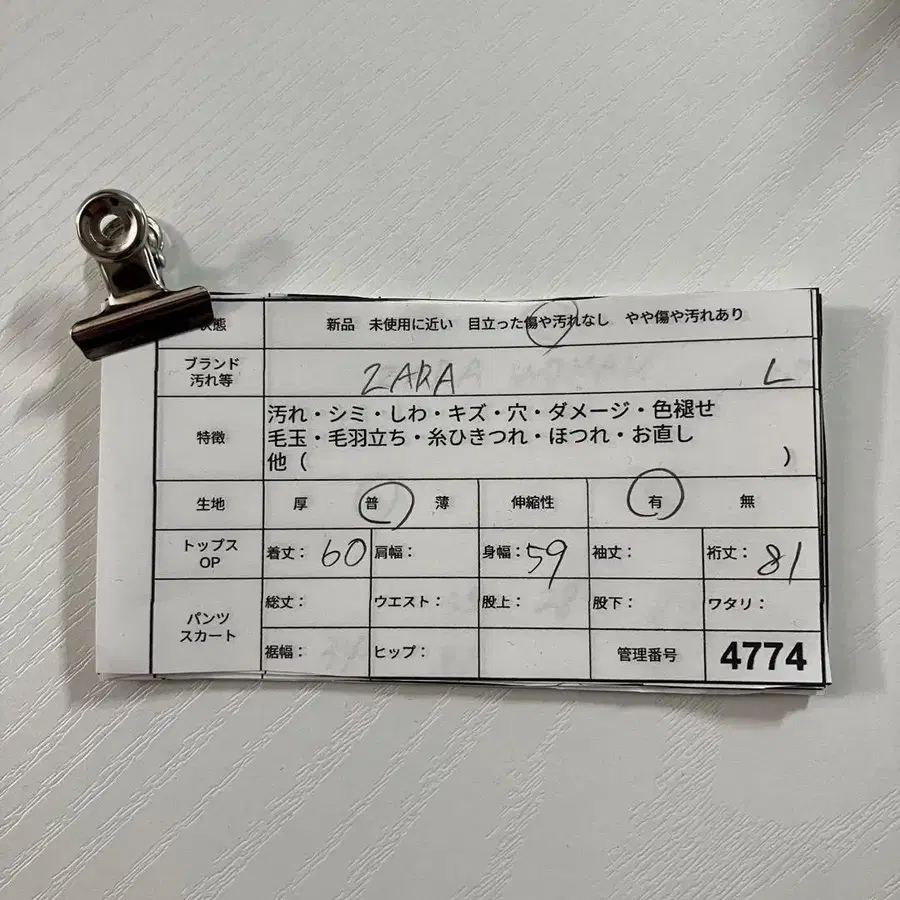 状態 新品 未使用に近い 目立った傷や汚れなし やや傷や汚れあり
ブランド
汚れ等 ZARA L
特徴 汚れ・シミ・しわ・キズ・穴・ダメージ・色褪せ
毛玉・毛羽立ち・糸ひきつれ・ほつれ・お直し
他（ ）
生地 厚 普 薄 伸縮性 有 無
トップス
OP 着丈：60 肩幅： 身幅：59 袖丈： 裄丈：81
パンツ
スカート 総丈： ウエスト： 股上： 股下： ワタリ：
裾幅： ヒップ： 管理番号 4774